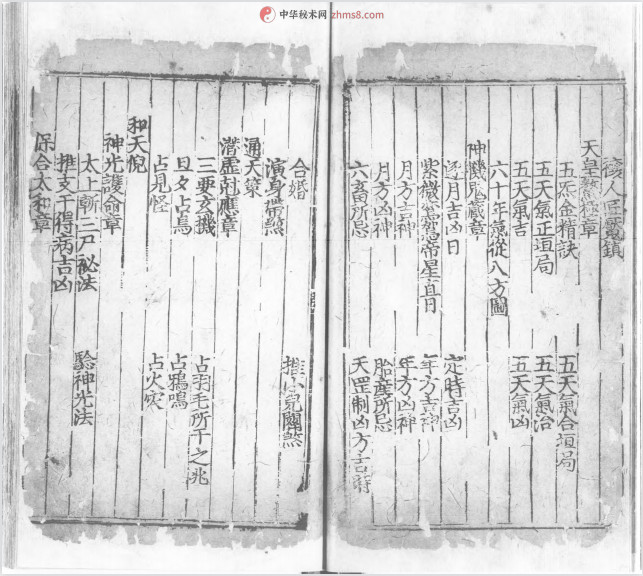 中华秘术网 zhms8.com
人 鎖
天皇鰲極章
五炁金精訣 五天氣合垣局
五天氣正垣局 五天氣治
五天氣吉 五天氣凶
六十年竟從八方圖
神機 藏章
逐月吉凶日 定時吉凶
紫微鸞駕帝星直日 年方吉神
月方吉神 年方凶神
月方凶神 胎產所忌
六畜所忌 天罡制凶方吉時
合婚 推小兒關煞
演身帶煞
通天竅
潛虛剋應章
三要玄機 占羽毛所干之兆
旦夕占鳥 占鴉鳴
占見怪 占火災
和天倪
神光護命章
太上斬三尸祕法 驗神光法
推支干得病吉凶
保合太和章